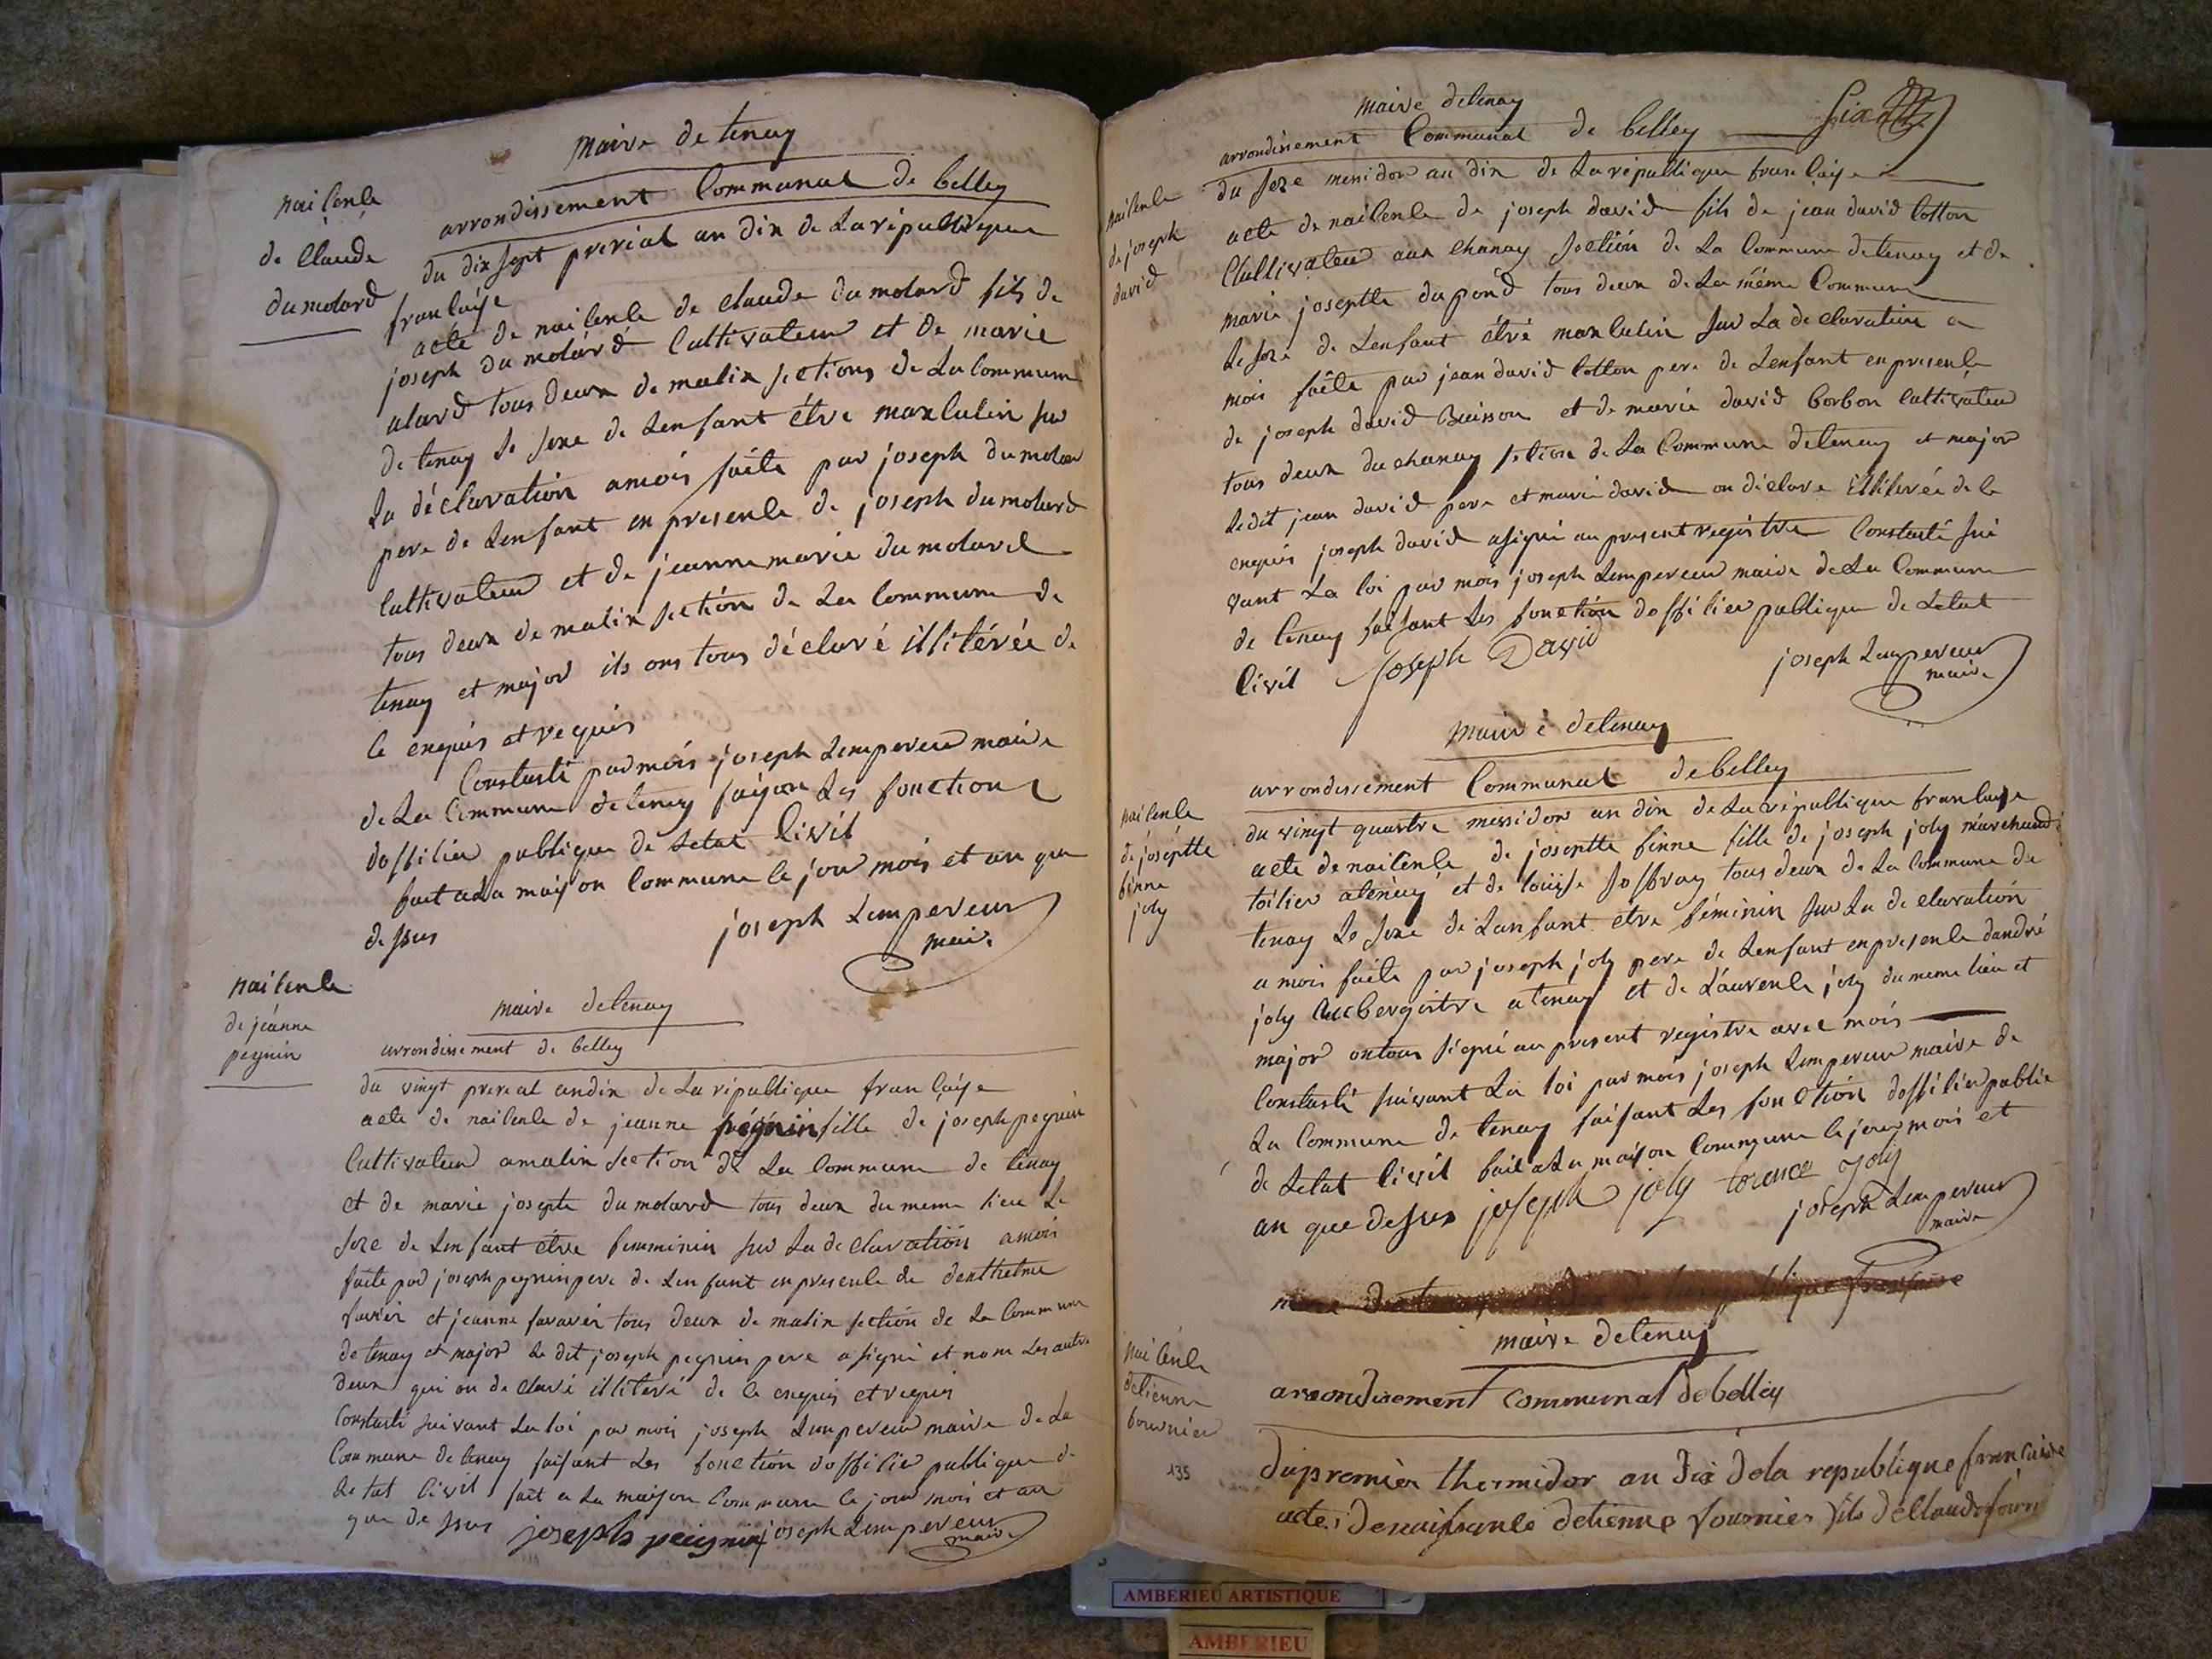 maire de tenay
arrondissement Communal de belley
nailenle
de Claude
dumolard
du dix sept prerial an dix de la république
franlaise
acte de nailenle de claude dumolard fils de
joseph dumolard Cultivateur et de marie
alard tous deux de malix sections de la Commune
de tenay le sexe de Lenfant étre maxlulin sur
La déclaration amois faite par joseph dumolar
pere de Lenfant en presenle de joseph dumolard
Cultivateur et de jeanne marie dumolard
tous deux de malix section de La Commune de
tenay et major ils ons tous déclaré illitérée de
le enquis et requis
Constasté par mois joseph Lempereur maire
de La Commune detenay faison Les fonctions
doffilier publique de Letat Civil
fait a La maison Commune le jour mois et an que
dessus
joseph Lempereur
maire
nailenle
de jéanne
pegnin
maire detenay
arrondissement de belley
du vingt prereal andix de La république franlaise
acte de nailenle de jeanne pégnin fille de joseph pegnin
Cultivateur amalin section de La Commune de tenay
et de marie josepte dumolard tous deux du meme lieu Le
sexe de Lenfant étre femminin sur La declaration amois
faite par joseph pegnin pere de Lenfant en presenle de denthelme
favier et jeanne favavier tous deux de malix section de La Commune
de tenay et major Le dit joseph pegnin pere a signé et nom Les autre
deux qui on declaré illiteré de le enquis et requis
Constasté suivant La loi par mois joseph Lempereur maire de La
Commune de tenay faisant Les fonction doffilier publique de
Letat Civil fait a La maison Commune le jour mois et an
que dessus joseph peignin joseph Lempereur
maire
maire detenay
arrondissement Communal de belley
Six
nailenle
de joseph
david
du seze messidor an dix de La république franlaise
acte de nailenle de joseph david fils de jean david Cotton
Cultivateur aux chanay section de La Commune detenay et de
marie josephte dupond tous deux de La méme Commune
Le sexe de Lenfant étré maxlulin sur La declaration a
mois faite par jean david Cotton pere de Lenfant enpresenle
de joseph david Buisson et de marie david borbon Cultivateur
tous deux du chanay section de La Commune detenay et major
Ledit jean david pere et marie david on déclare illiterée de le
enquis joseph david asigné au present registre Constasté sui
vant La loi par mois joseph Lempereur maire de La Commune
de tenay faisant Les fonction doffilier publique de Letat
Civil Joseph David
joseph Lempereur
maire
maire detenay
arrondissement Communal debelley
nailenle
de joséptte
finne
joly
du vingt quastre messidor an dix de La république franlaise
acte de nailenle de joseptte finne fille de joseph joly marchand
toilier atenay et de louise joffray tous deux de La Commune de
tenay Le sexe de Lanfant etre féminin sur La declaration
a mois faite par joseph joly pere de Lenfant enpresenle dandré
joly aubergistre atenay et de Laurenle joly du meme lieu et
major ontous signé au present registre avec mois
Constasté suivant La loi par mois joseph Lempereur maire de
La Commune de tenay faisant Les fonction doffilier public
de Letat Civil fait a La maison Commune le jour mois et
an que dessus joseph joly lorence joly
joseph Lempereur
maire
maire detenay
arrondisement communal debelley
nailenle
detienne
fournier
135
dupremier thermidor an dix dela republique francaise
acte denaissanle detienne fournier fils declaude fourni
AMBERIEU ARTISTIQUE
AMBERIEU